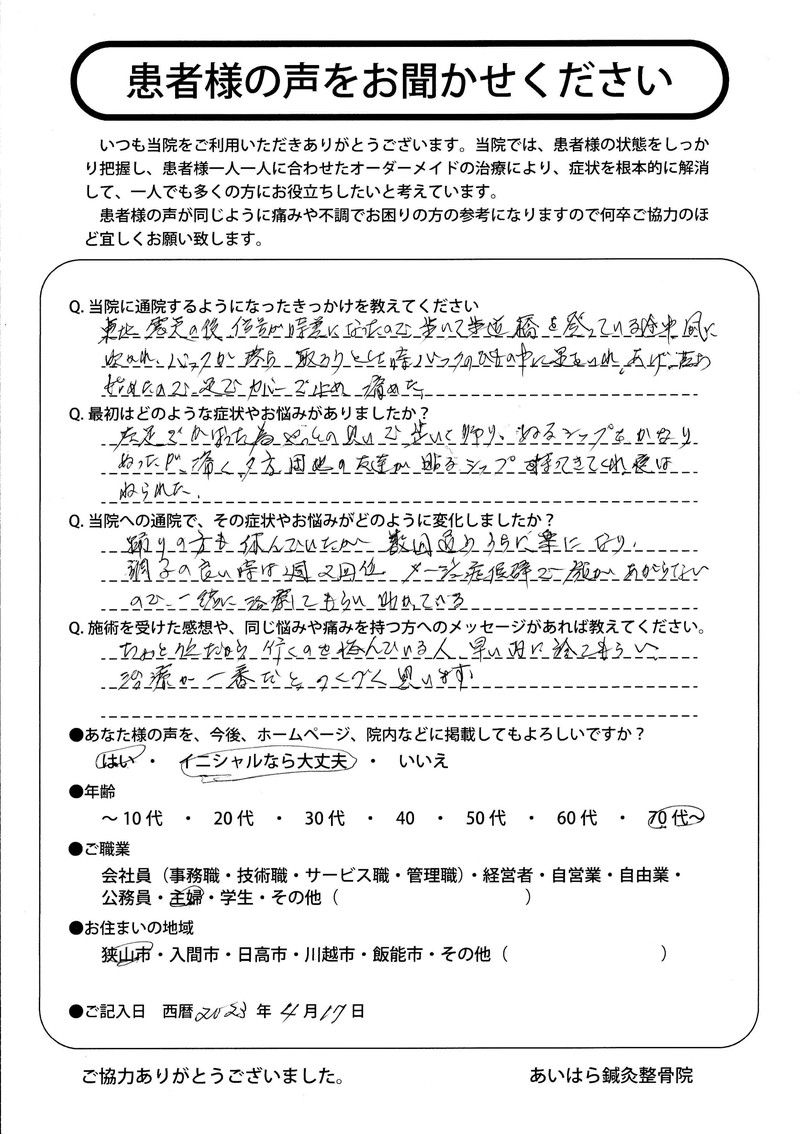 患者様の声をお聞かせください
いつも当院をご利用いただきありがとうございます。当院では、患者様の状態をしっか
り把握し、患者様一人一人に合わせたオーダーメイドの治療により、症状を根本的に解消
して、一人でも多くの方にお役立ちしたいと考えています。
患者様の声が同じように痛みや不調でお困りの方の参考になりますので何卒ご協力のほ
ど宜しくお願い致します。
Q. 当院に通院するようになったきっかけを教えてください
東北 震災の後 信号が になったので 歩いて歩道橋を登っている途中 風に
吹かれ、バックが落ち 取ろうとした時バックのひもの中に足をいれ、あげ
始めたので足でカバーで止め 痛めた
Q. 最初はどのような症状やお悩みがありましたか？
左足でかばった為やっとの思いで歩いて帰り、ぬるシップをかなり
ぬったが、痛く、夕方団地の友達が貼るシップ持ってきてくれ夜は
ねられた。
Q. 当院への通院で、その症状やお悩みがどのように変化しましたか？
踊りの方も休んでいたが 数回通ううちに楽になり、
調子の良い時は週2回位 症候群で腕があがらない
ので、一緒に治療してもらい助かっている
Q. 施術を受けた感想や、同じ悩みや痛みを持つ方へのメッセージがあれば教えてください。
ちょっと だから 行くのを悩んでいる人 早い内に診てもらい、
治療が一番だと、つくづく思います
●あなた様の声を、今後、ホームページ、院内などに掲載してもよろしいですか？
はい ・ イニシャルなら大丈夫 ・ いいえ
●年齢
～10代 ・ 20代 ・ 30代 ・ 40 ・ 50代 ・ 60代 ・ 70代～
●ご職業
会社員（事務職・技術職・サービス職・管理職）・経営者・自営業・自由業・
公務員・主婦・学生・その他（ ）
●お住まいの地域
狭山市・入間市・日高市・川越市・飯能市・その他（ ）
●ご記入日 西暦 2023 年 4 月 17 日
ご協力ありがとうございました。
あいはら鍼灸整骨院